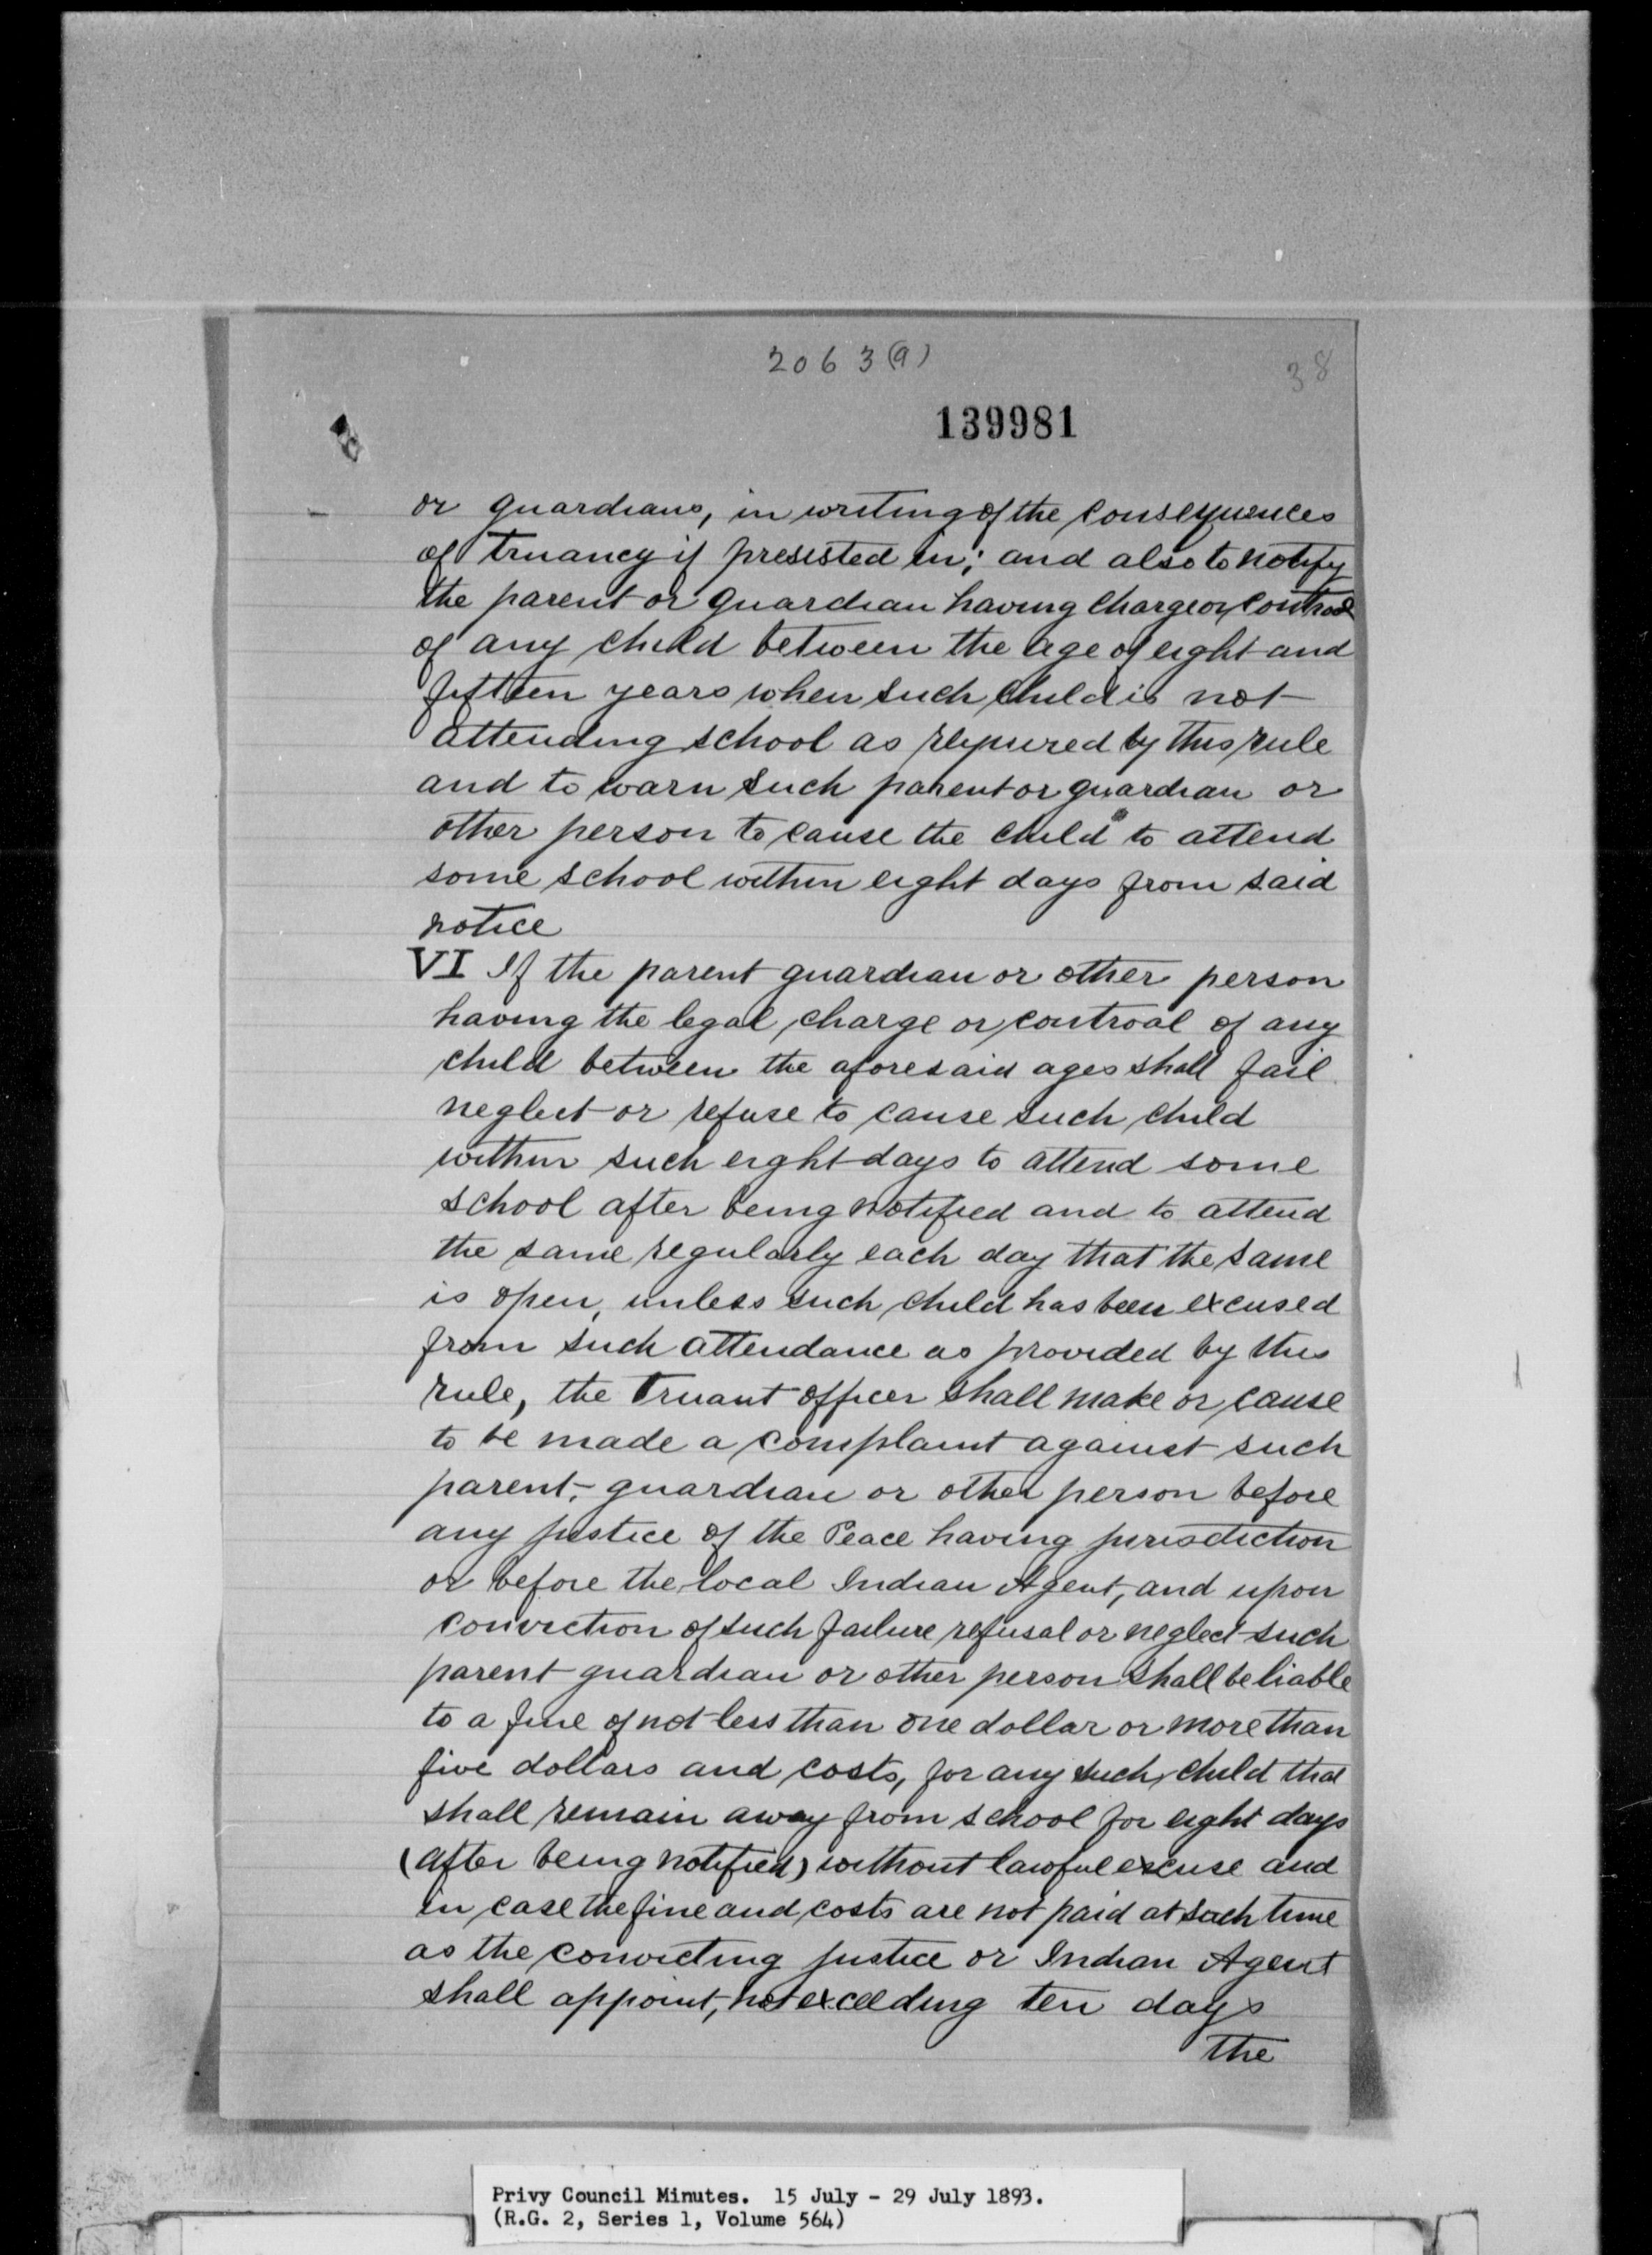 2063(a)
38
139981
or guardians, in writing of the consequences
of truancy if presisted in; and also to notify
the parent or guardian having charge or control
of any child between the age of eight and
fifteen years when such child is not
attending school as required by this rule
and to warn such parent or guardian or
other person to cause the child to attend
some school within eight days from said
notice
VI If the parent guardian or other person
having the legal charge or controal of any
child between the aforesaid ages shall fail
neglect or refuse to cause such child
within such eight days to attend some
school after being notified and to attend
the same regularly each day that the same
is open, unless such child has been excused
from such attendance as provided by this
rule, the Truant officer shall make or cause
to be made a complaint against such
parent, guardian or other person before
any justice of the Peace having jurisdiction
or before the local Indian Agent, and upon
conviction of such failure refusal or neglect such
parent guardian or other person shall be liable
to a fine of not less than one dollar or more than
five dollars and costs, for any such child that
shall remain away from school for eight days
(after being notified) without lawful excuse and
in case the fine and costs are not paid at such time
as the convicting justice or Indian Agent
shall appoint, not exceeding ten days
the
Privy Council Minutes. 15 July - 29 July 1893.
(R.G. 2, Series 1, Volume 564)